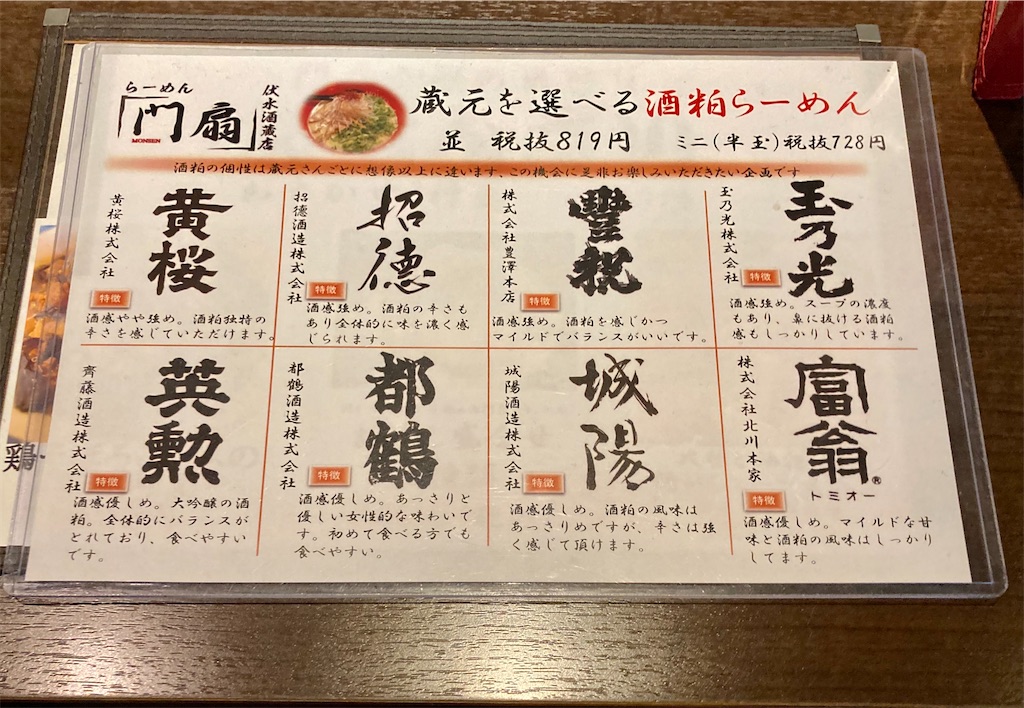 らーめん
門扇
MONSEN
伏水酒蔵店
蔵元を選べる酒粕らーめん
並 税抜819円 ミニ(半玉)税抜728円
酒粕の個性は蔵元さんごとに想像以上に違います、この機会に是非お楽しみいただきたい企画です
黄桜株式会社
黄桜
特徴
酒感やや強め。酒粕独特の
辛さを感じていただけます。
招德酒造株式会社
招德
特徴
酒感強め。酒粕の辛さも
あり全体的に味を濃く感
じられます。
株式会社豊澤本店
豐祝
特徴
酒感強め。酒粕を感じかつ
マイルドでバランスがいいです。
玉乃光株式会社
玉乃光
特徴
酒感強め。スープの濃度
もあり、鼻に抜ける酒粕
感もしっかりしています。
齊藤酒造株式会社
英勲
特徴
酒感優しめ。大吟醸の酒
粕。全体的にバランスが
とれており、食べやすい
です。
都鶴酒造株式会社
都鶴
特徴
酒感優しめ。あっさりと
優しい女性的な味わいで
す。初めて食べる方でも
食べやすい。
城陽酒造株式会社
城陽
特徴
酒感優しめ。酒粕の風味は
あっさりめですが、辛さは強
く感じて頂けます。
株式会社北川本家
富翁
®
トミオー
特徴
酒感優しめ。マイルドな甘
味と酒粕の風味はしっかり
してます。
鶏